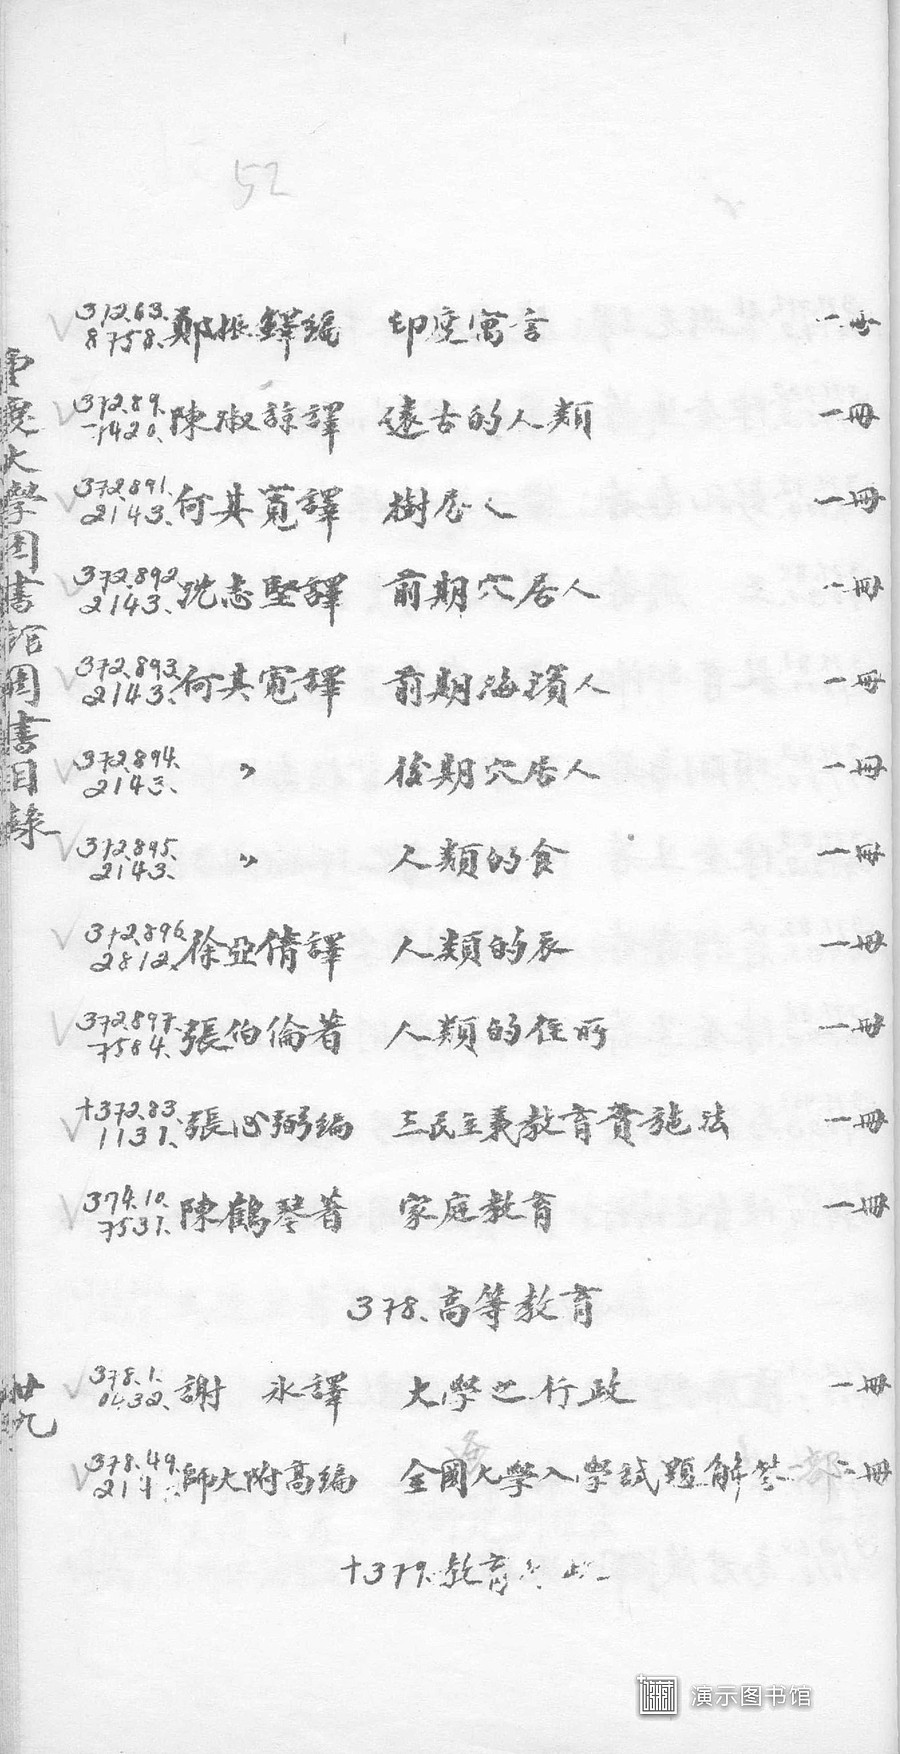 52
372.63.
8758. 鄭振鐸編 印度寓言 一冊
372.89.
7420. 陳淑諒譯 遠古的人類 一冊
372.891.
2143. 何其寬譯 樹居人 一冊
372.892
2143. 沈志堅譯 前期穴居人 一冊
372.893.
2143. 何其寬譯 前期海濱人 一冊
372.894.
2143. 〃 後期穴居人 一冊
372.895.
2143. 〃 人類的食 一冊
372.896.
2812. 徐亞倩譯 人類的衣 一冊
372.897.
7584. 張伯倫著 人類的住所 一冊
+372.83.
1131. 張心弼編 三民主義教育實施法 一冊
374.10.
7531. 陳鶴琴著 家庭教育 一冊
378. 高等教育
378.1.
0432. 謝 氷譯 大學之行政 一冊
378.49.
師大附高編 全國大學入學試題解答 一部二冊
+379. 教育
重慶大學圖書館圖書目錄
卅九
演示图书馆